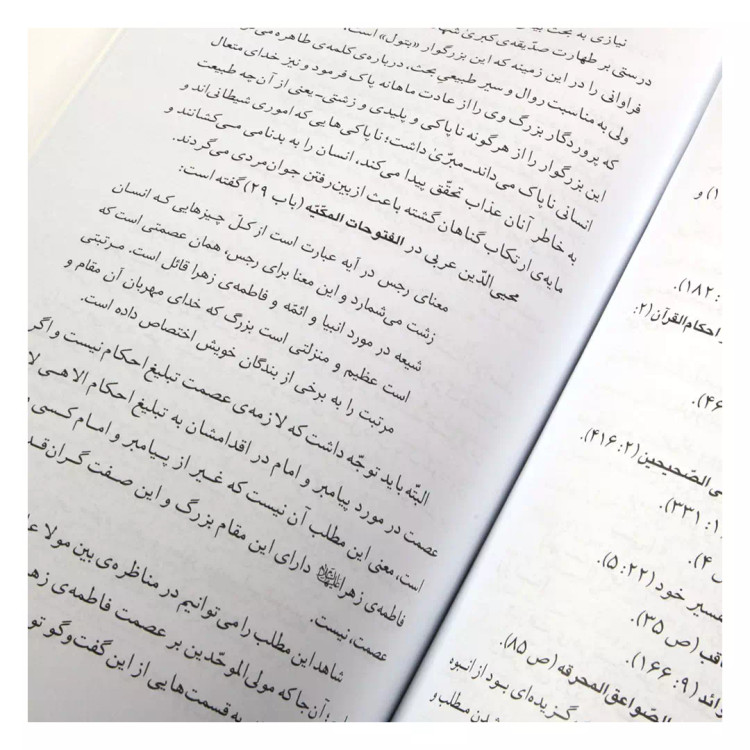 نیازی به بحث
درستی بر طهارت صدّیقه‌ی کبریٰ
فراوانی را در این زمینه که این بزرگوار «بتول» است،
ولی به مناسبت روال و سیر طبیعیِ بحث، درباره‌ی کلمه‌ی طاهره
که پروردگار بزرگ وی را از عادت ماهانه پاک فرمود و نیز خدای متعال
این بزرگوار را از هرگونه ناپاکی و پلیدی و زشتی-یعنی از آن‌چه طبیعت
انسانی ناپاک می‌داند-مبرّیٰ داشت؛ ناپاکی‌هایی که اموری شیطانی‌اند و
به خاطر آنان عذاب تحقّق پیدا می‌کند، انسان را به بدنامی می‌کشانند و
مایه‌ی ارتکاب گناهان گشته باعث ازبین‌رفتن جوان‌مردی می‌گردند.
محیی‌الدّین عربی در الفتوحات المکّیّه (باب ۲۹) گفته است:
معنای رجس در آیه عبارت است از کلّ چیزهایی که انسان
زشت می‌شمارد و این معنا برای رجس، همان عصمتی است که
شیعه در مورد انبیا و ائمّه و فاطمه‌ی زهرا قائل است. مرتبتی
است عظیم و منزلتی است بزرگ که خدای مهربان آن مقام و
مرتبت را به برخی از بندگان خویش اختصاص داده است.
البتّه باید توجّه داشت که لازمه‌ی عصمت تبلیغ احکام نیست و اگر
عصمت در مورد پیامبر و امام در اقدامشان به تبلیغ احکام الاهی
است، معنی این مطلب آن نیست که غیر از پیامبر و امام کسی
فاطمه‌ی زهرا دارای این مقام بزرگ و این صفت گران‌قد
عصمت، نیست.
شاهد این مطلب را می‌توانیم در مناظره‌ی بین مولا
آن‌جا که مولی‌الموحّدین بر عصمت فاطمه‌ی
به قسمت‌هایی از این گفت‌وگو
۱) و
۱۸۲).
احکام القرآن (۲:
۴۶).
الصّحیحین (۲: ۴۱۶).
۱: ۳۳۱).
۴).
تفسیر خود (۲۲: ۵).
(ص ۳۵).
(۹: ۱۶۶).
الصّواعق المحرقه (ص ۸۵).
گزیده‌ای بود از انبوه
شدن مطلب و